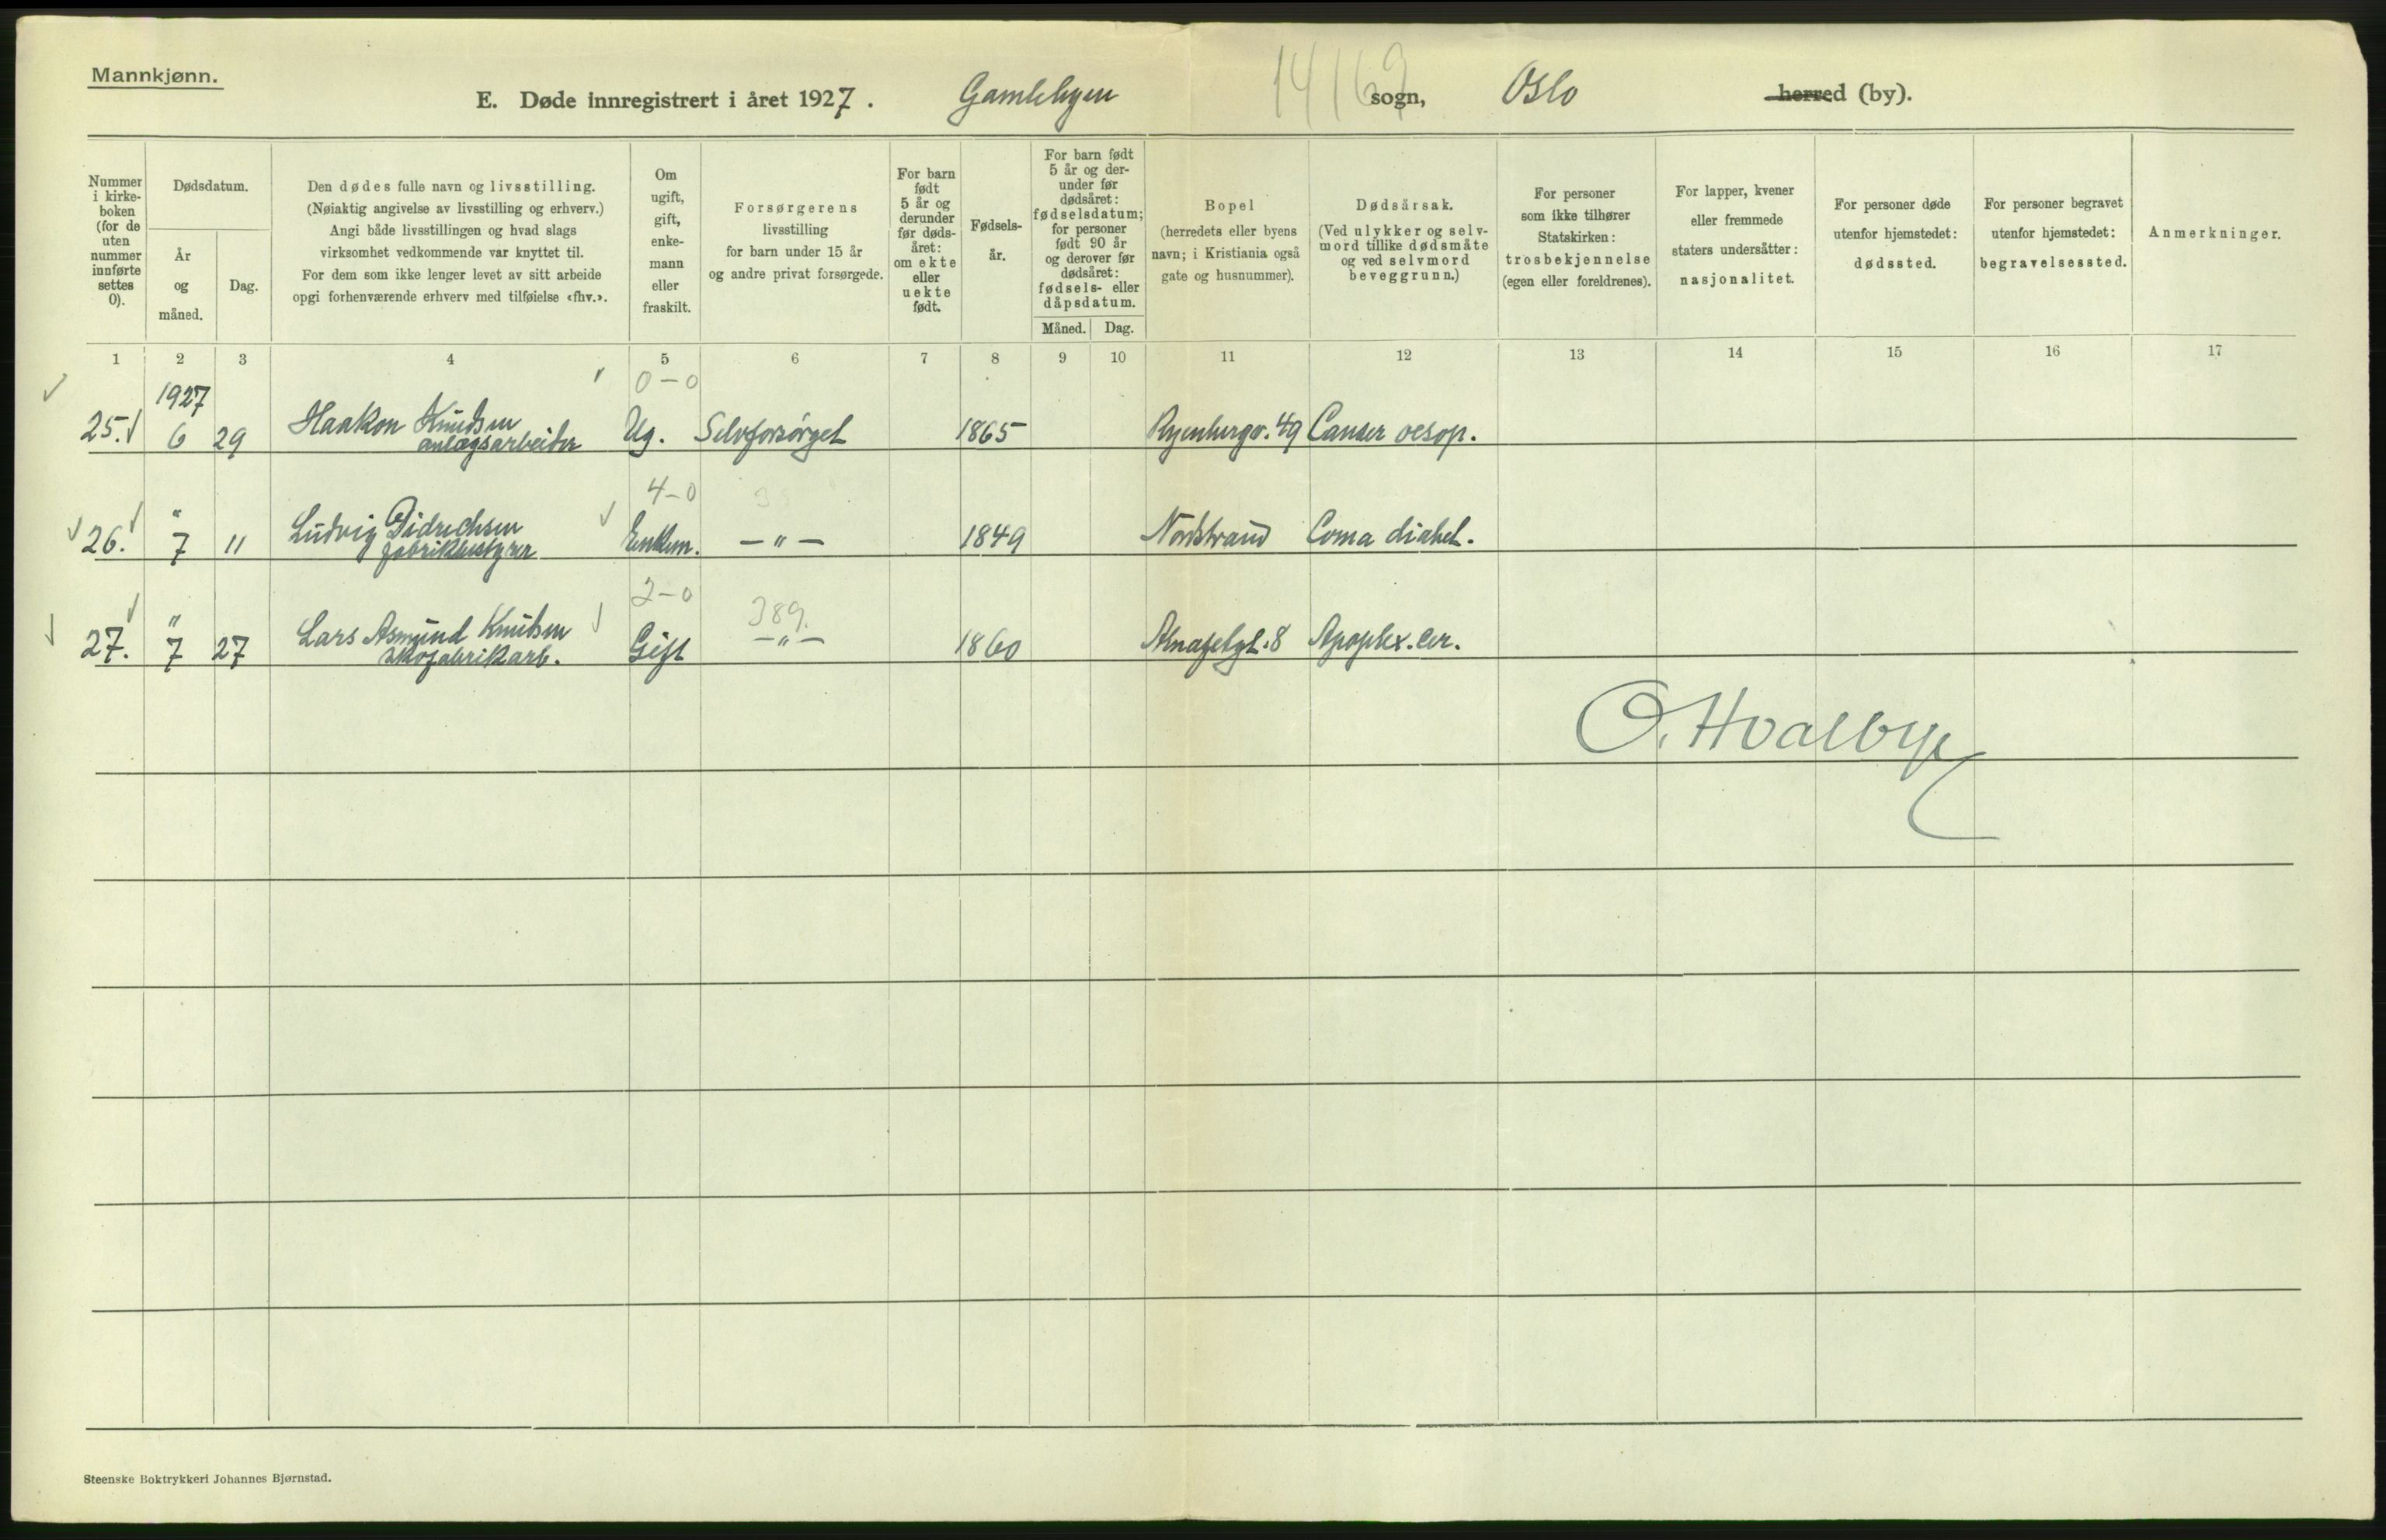 Mannkjønn.
E. Døde innregistrert i året 1927. Gamlebyen sogn, Oslo herred (by).
14169
Nummer i kirke-boken (for de uten nummer innførte settes 0).
Dødsdatum.
År og måned.
Dag.
Den dødes fulle navn og livsstilling.
(Nøiaktig angivelse av livsstilling og erhverv.)
Angi både livsstillingen og hvad slags
virksomhet vedkommende var knyttet til.
For dem som ikke lenger levet av sitt arbeide
opgi forhenværende erhverv med tilføielse «fhv.».
Om
ugift,
gift,
enke-
mann
eller
fraskilt.
Forsørgerens
livsstilling
for barn under 15 år
og andre privat forsørgede.
For barn
født
5 år og
derunder
før døds-
året:
om ekte
eller
uekte
født.
Fødsels-
år.
For barn født
5 år og der-
under før
dødsåret:
fødselsdatum;
for personer
født 90 år
og derover før
dødsåret:
fødsels- eller
dåpsdatum.
Måned. Dag.
Bopel
(herredets eller byens
navn; i Kristiania også
gate og husnummer).
Dødsårsak.
(Ved ulykker og selv-
mord tillike dødsmåte
og ved selvmord
beveggrunn.)
For personer
som ikke tilhører
Statskirken:
trosbekjennelse
(egen eller foreldrenes).
For lapper, kvener
eller fremmede
staters undersåtter:
nasjonalitet.
For personer døde
utenfor hjemstedet:
dødssted.
For personer begravet
utenfor hjemstedet:
begravelsessted.
Anmerkninger.
1 2 3 4 5 6 7 8 9 10 11 12 13 14 15 16 17
1927 0-0
25. 6 29 Haakon Knudsen Ug. Selvforsørget 1865 Ryenbergv. 49 Canser oesop.
anlægsarbeider
4-0
26. " 7 11 Ludvig Didrichsen Enkem. -"- 1849 Nordstrand Coma diabet.
fabrikbestyrer
2-0 389.
27. " 7 27 Lars Asmund Knutsen Gift -"- 1860 Almafetgt. 8 Apoplex. cer.
skofabrikarb.
O. Hvalbye
Steenske Boktrykkeri Johannes Bjørnstad.